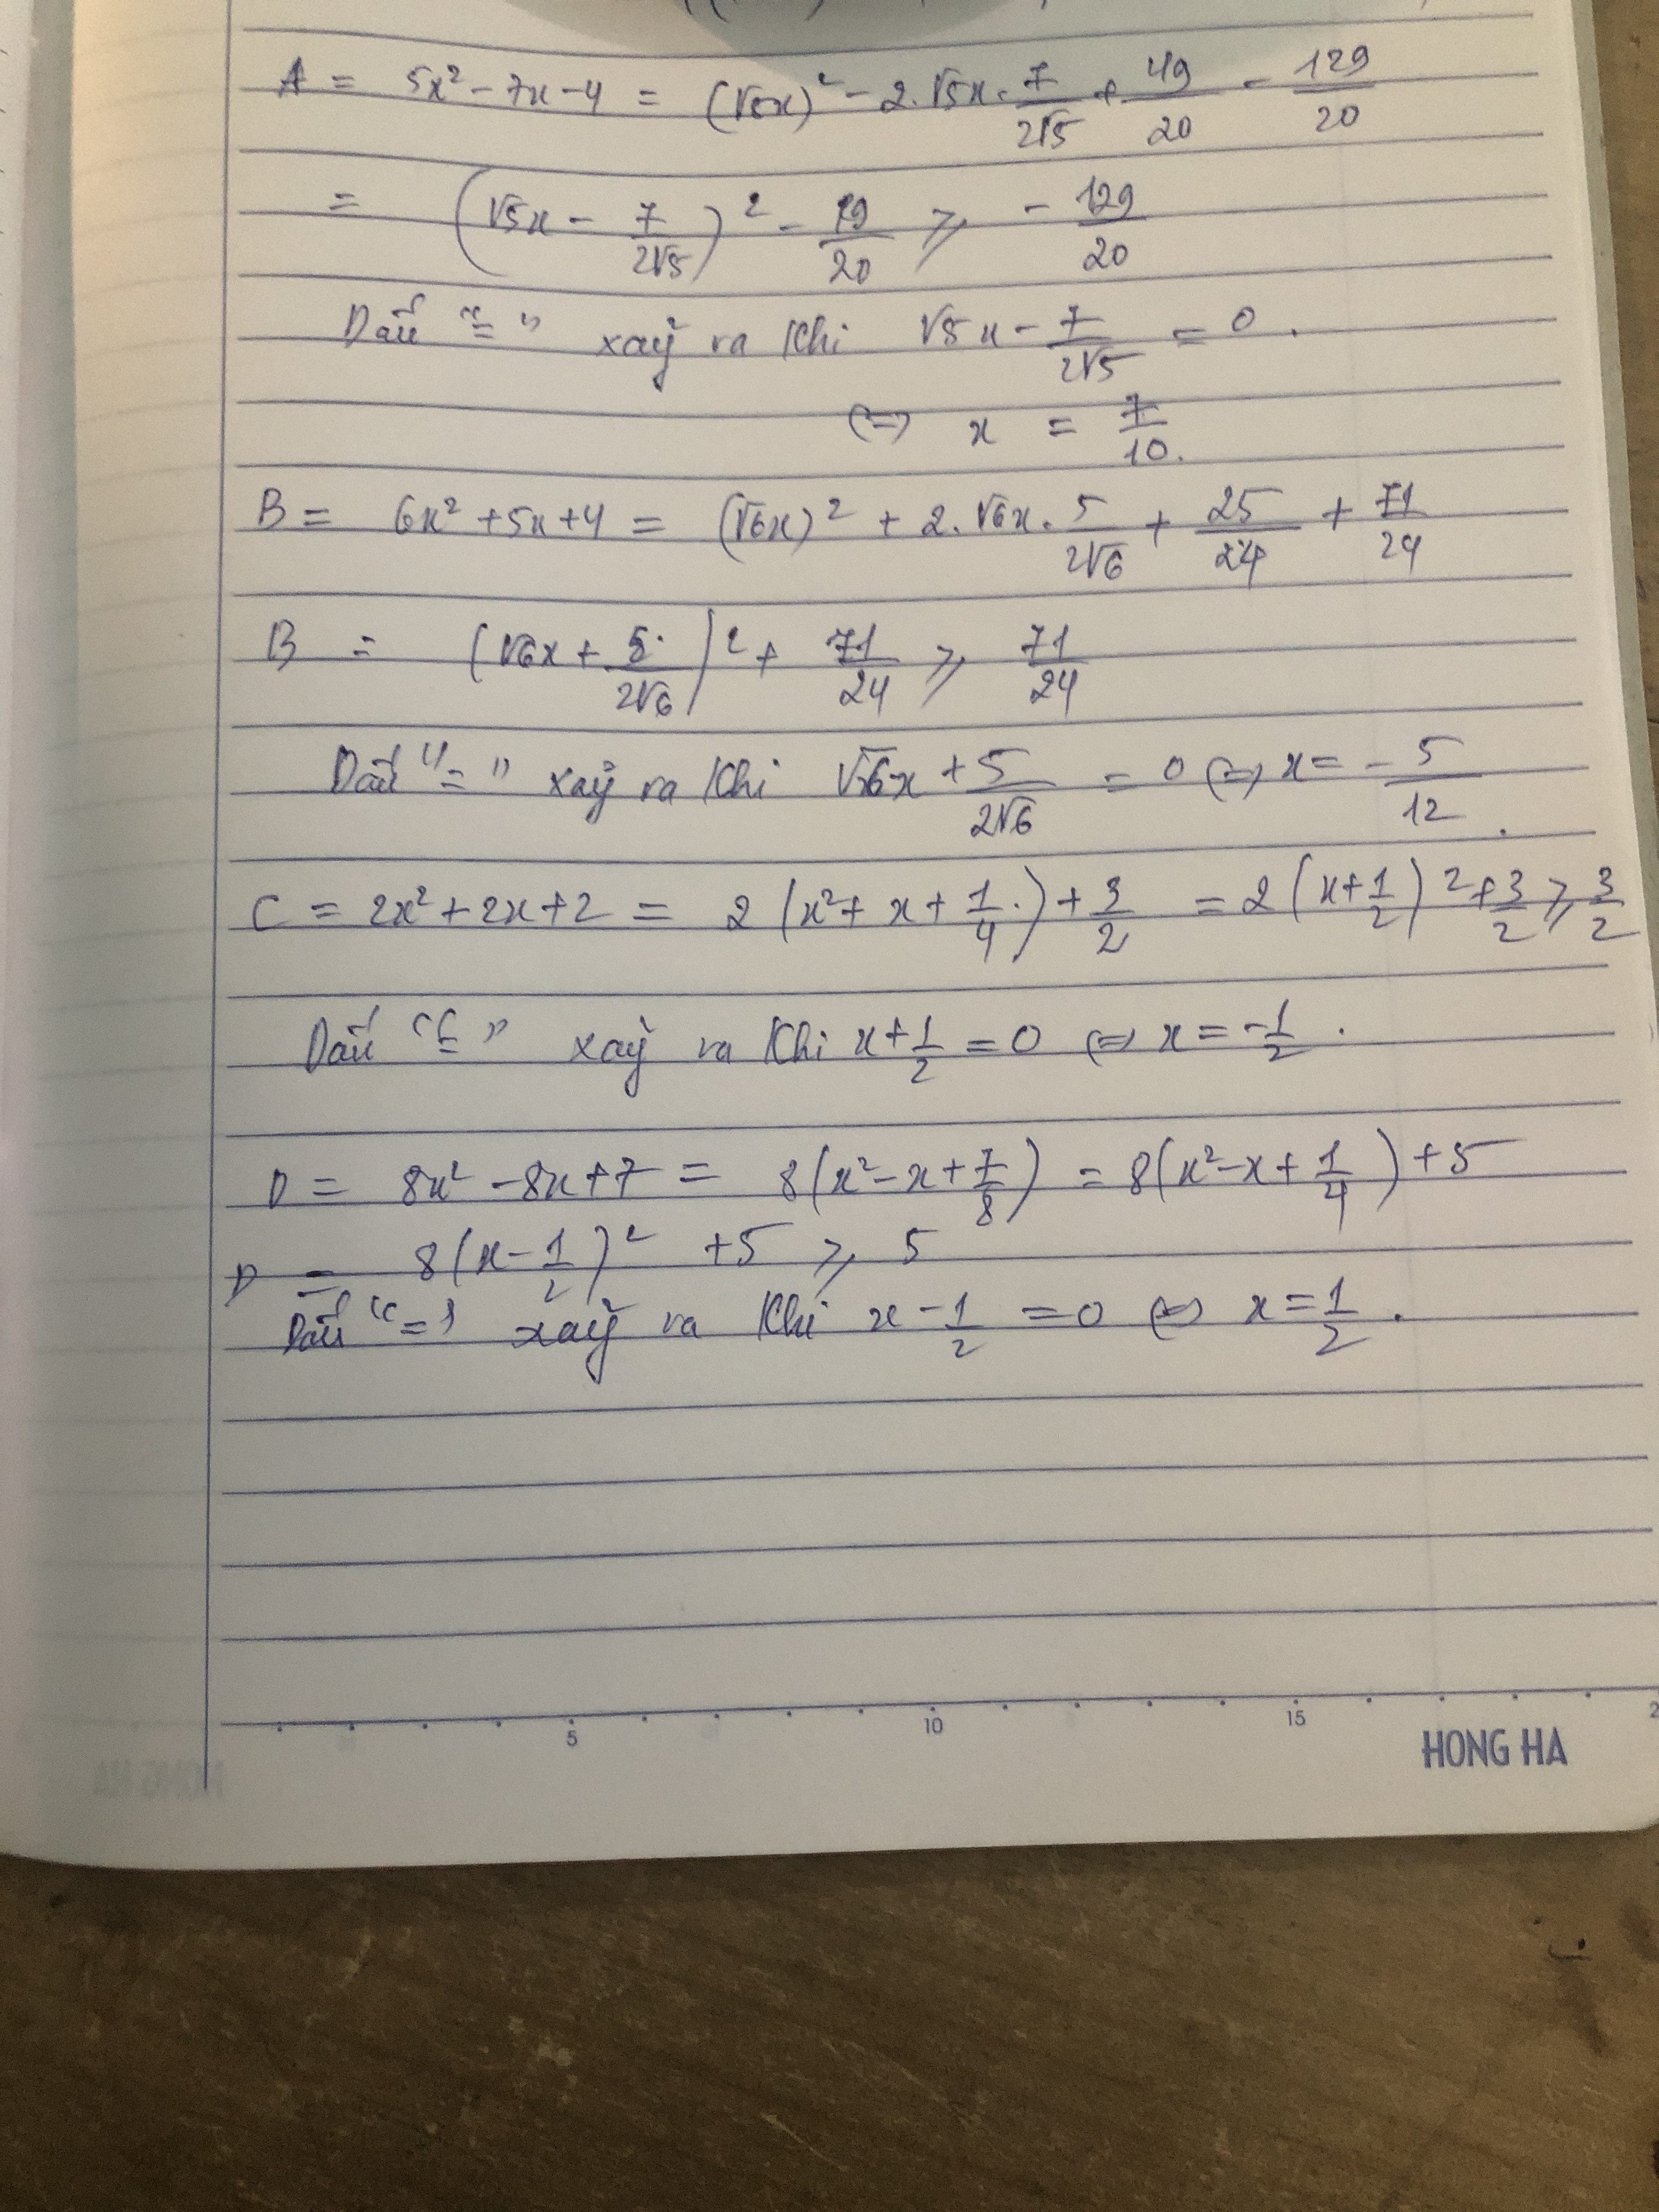 A = 5x² - 7x - 4 = (√5x)² - 2.√5x . 7/2√5 + 49/20 - 129/20
= (√5x - 7/2√5)² - 19/20 ⩾ - 129/20
Dấu "=" xảy ra khi √5x - 7/2√5 = 0 .
(=) x = 7/10.
B = 6x² + 5x + 4 = (√6x)² + 2.√6x . 5/2√6 + 25/24 + 71/24
B = (√6x + 5/2√6)² + 71/24 ⩾ 71/24
Dấu "=" xảy ra khi √6x + 5/2√6 = 0 (=) x = - 5/12 .
C = 2x² + 2x + 2 = 2(x² + x + 1/4.) + 3/2 = 2(x + 1/2)² + 3/2 ⩾ 3/2
Dấu "=" xảy ra khi x + 1/2 = 0 (=) x = -1/2 .
D = 8x² - 8x + 7 = 8(x² - x + 7/8) = 8(x² - x + 1/4) + 5
D = 8(x - 1/2)² + 5 ⩾ 5
Dấu "=" xảy ra khi x - 1/2 = 0 (=) x = 1/2 .
5 10 15
HONG HA